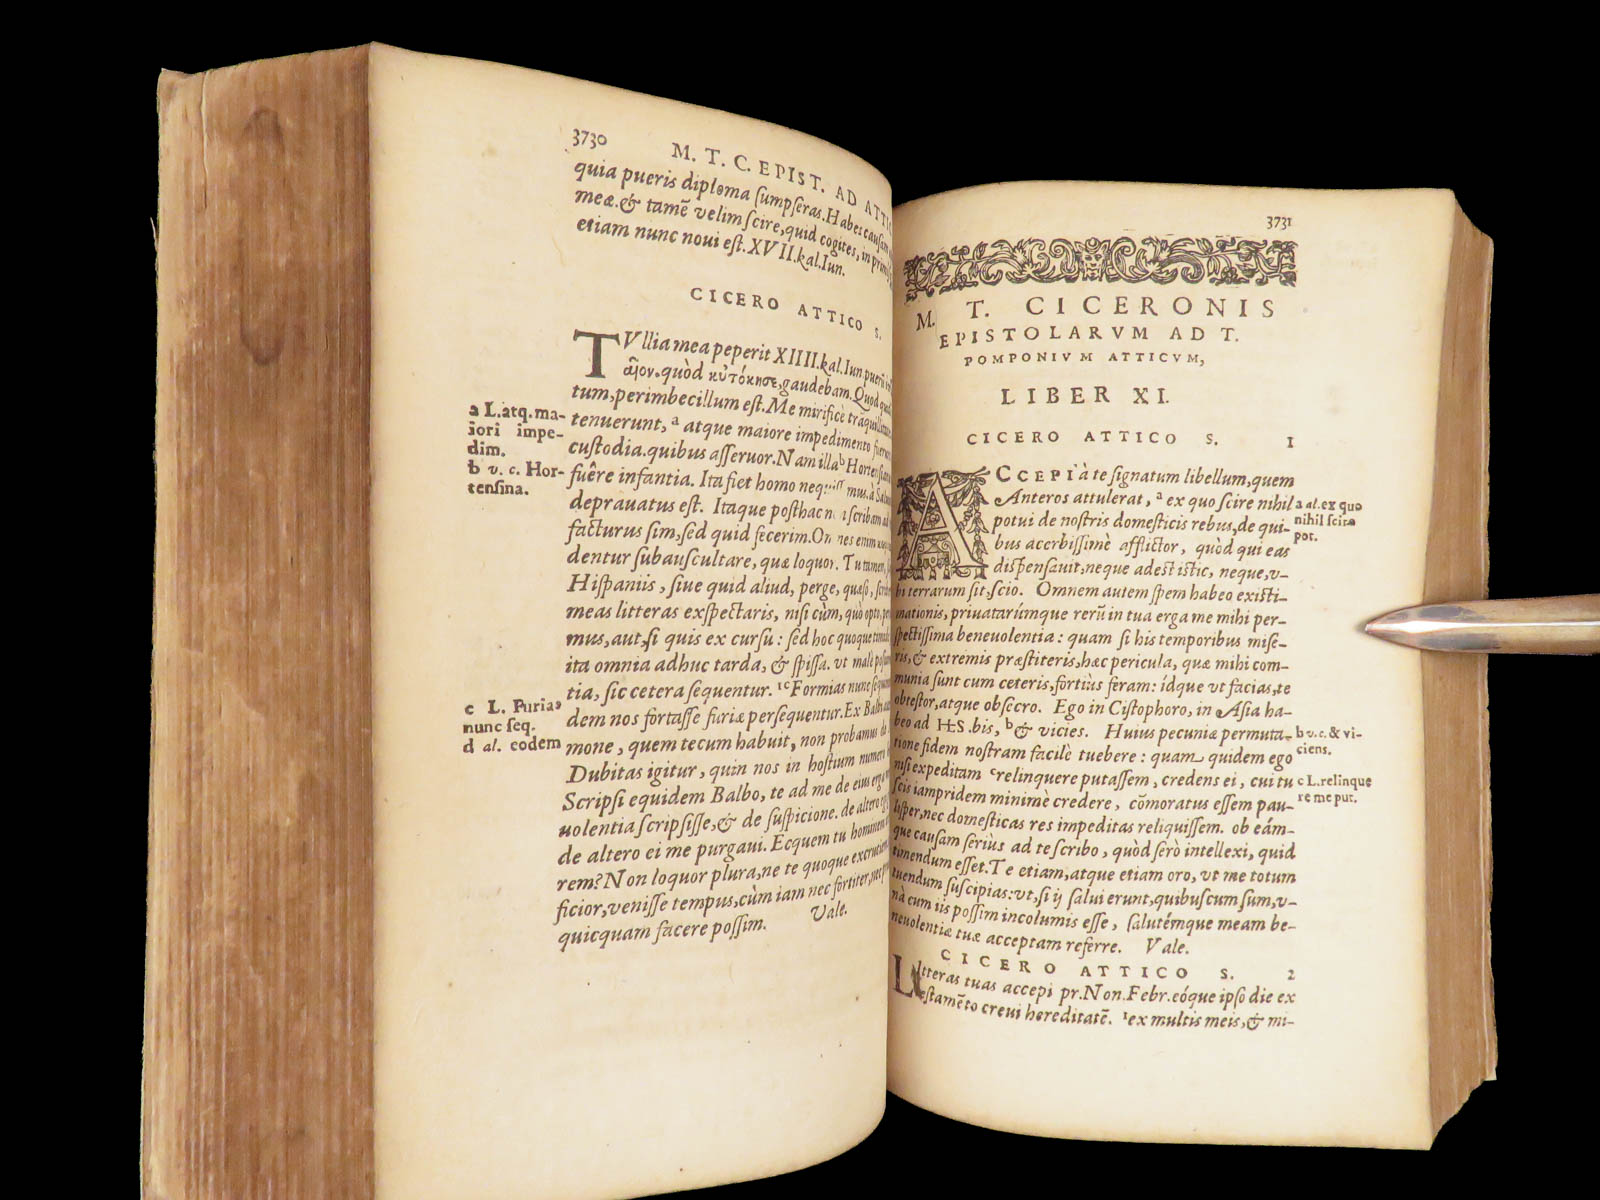 3730
M. T. C. EPIST. AD ATTI
quia pueris diploma sumpseras. Habes causam
meæ. & tamē velim scire, quid cogites, in primis
etiam nunc noui est. XVII. kal. Iun.
CICERO ATTICO S.
TVllia mea peperit XIIII. kal. Iun. puerū
quòd ηὐτόκησε, gaudebam. Quod
tum, perimbecillum est. Me mirificè trāquillitates
tenuerunt, a atque maiore impedimento fuerunt
custodia. quibus asseruor. Nam illa b Hortensiana
fuêre infantia. Ita fiet homo nequissimus. à
deprauatus est. Itaque posthac scribam
facturus sim, sed quid fecerim. Omnes enim
dentur subauscultare, quæ loquor. Tu tamen,
Hispaniis, siue quid aliud, perge, quæso,
meas litteras exspectaris, nisi cùm, quò opto,
mus, aut, si quis ex cursū: sed hoc quoque
ita omnia adhuc tarda, & spissa. vt malè
tia, sic cetera sequentur. 1c Formias nunc
dem nos fortasse furiæ persequentur. Ex Balbi
mone, quem tecum habuit, non probamus
Dubitas igitur, quin nos in hostium numero
Scripsi equidem Balbo, te ad me de eius erga
uolentia scripsisse, & de suspicione. de altero
de altero ei me purgaui. Ecquem tu hominem
rem? Non loquor plura, ne te quoque
ficior, venisse tempus, cùm iam nec fortiter, nec
quicquam facere possim. Vale.
a L. atq. ma-
iori impe-
dim.
b v. c. Hor-
tensina.
c L. Furias
nunc seq.
d al. eodem
3731
M. T. CICERONIS
EPISTOLARVM AD T.
POMPONIVM ATTICVM,
LIBER XI.
CICERO ATTICO S. 1
ACCEPI à te signatum libellum, quem
Anteros attulerat, a ex quo scire nihil
potui de nostris domesticis rebus, de qui-
bus acerbissimè afflictor, quòd qui eas
dispensauit, neque adest istic, neque, v-
bi terrarum sit, scio. Omnem autem spem habeo existi-
mationis, priuatarúmque rerū in tua erga me mihi per-
spectissima beneuolentia: quam si his temporibus mise-
ris, & extremis præstiteris, hæc pericula, quæ mihi com-
munia sunt cum ceteris, fortiùs feram: ídque vt facias, te
obtestor, atque obsecro. Ego in Cistophoro, in Asia ha-
beo ad HS. bis, b & vicies. Huius pecuniæ permuta-
tione fidem nostram facilè tuebere: quam quidem ego
nisi expeditam c relinquere putassem, credens ei, cui tu
scis iampridem minimè credere, cōmoratus essem pau-
lisper, nec domesticas res impeditas reliquissem. ob eám-
que causam seriùs ad te scribo, quòd serò intellexi, quid
timendum esset. Te etiam, atque etiam oro, vt me totum
tuendum suscipias: vt, si ij salui erunt, quibuscum sum, v-
nà cum iis possim incolumis esse, salutémque meam be-
neuolentiæ tuæ acceptam referre. Vale.
CICERO ATTICO S. 2
LItteras tuas accepi pr. Non. Febr. eóque ipso die ex
testamēto creui hereditatē. 1 ex multis meis, & mi-
a al. ex quo
nihil scire
pot.
b v. c. & vi-
ciens.
c L. relinque
re me put.